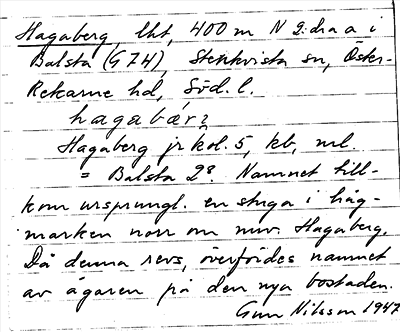 Hagaberg, lht, 400 m N 2:dra a i
Balsta (G 74), Stenkvista sn, Öster-
Rekarne hd, Söd. l.
hagabær̩
Hagaberg jr kol. 5, kb, ml.
= Balsta 2⁸. Namnet till-
kom ursprungl. en stuga i häg-
marken norr om nuv. Hagaberg.
Då denna revs, överfördes namnet
av ägaren på den nya bostaden.
Gun Nilsson 1947